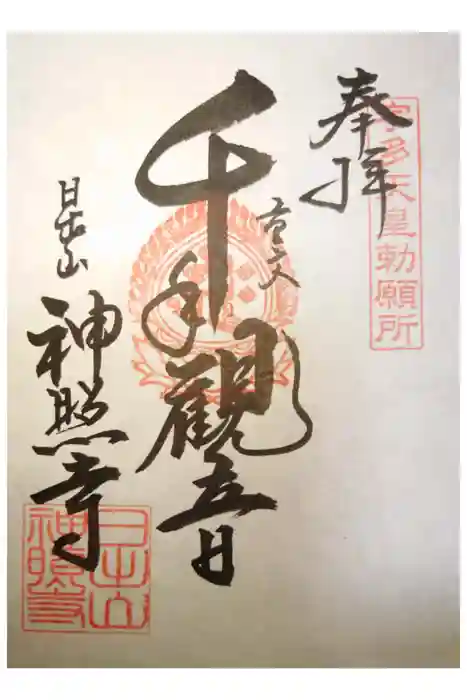 奉拝
宇多天皇勅願所
千手觀音
日出山
神照寺
日出山
神照寺